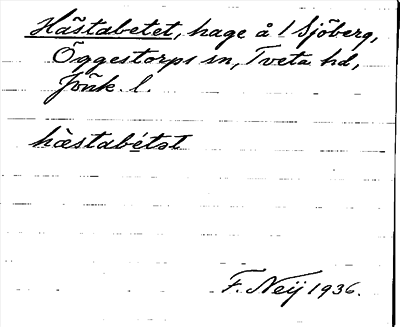 Hästabetet, hage å 1 Sjöberg,
Öggestorps sn, Tveta hd,
Jönk. l.
hästabétət
F. Neij 1936.